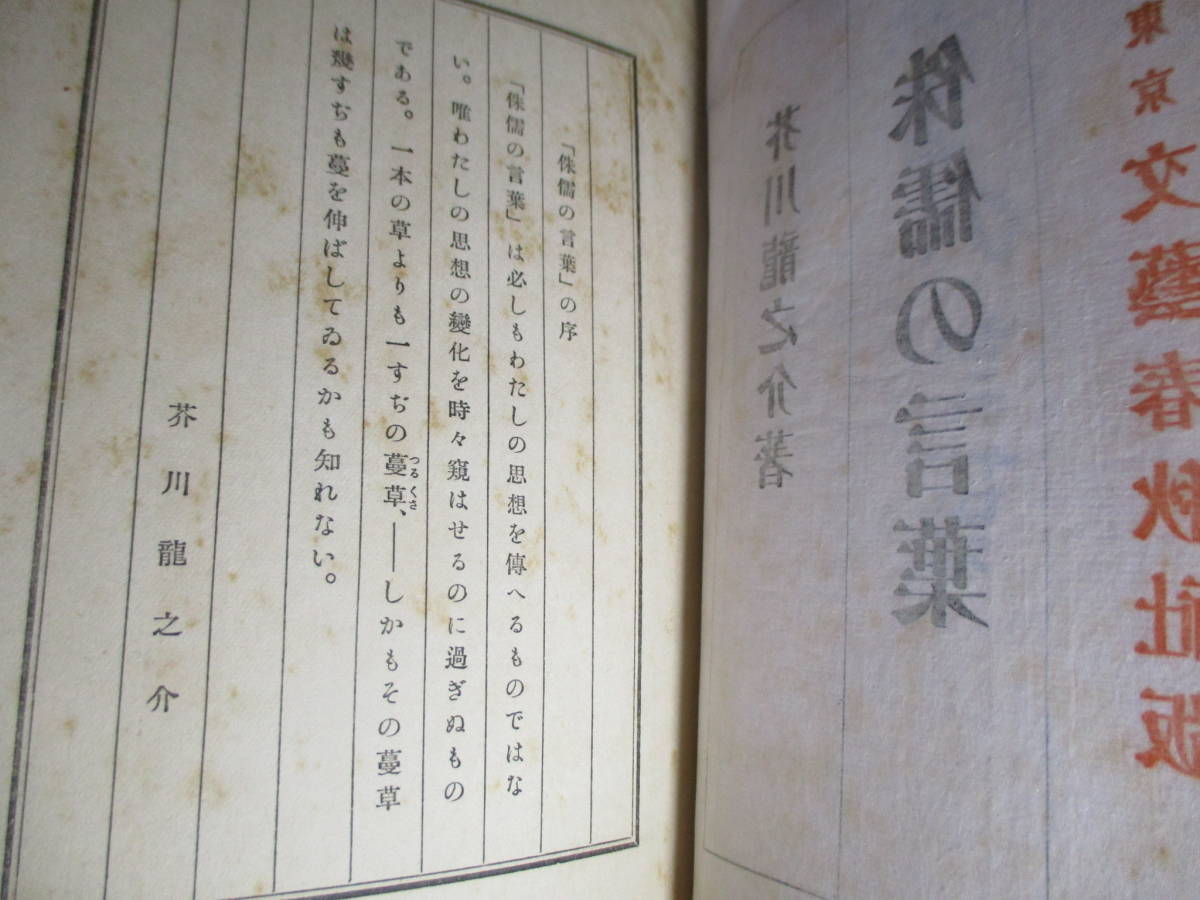 東京 文藝春秋社版
侏儒の言葉
芥川龍之介著
「侏儒の言葉」の序
「侏儒の言葉」は必しもわたしの思想を傳へるものではな
い。唯わたしの思想の變化を時々窺はせるのに過ぎぬもの
である。一本の草よりも一すぢの蔓草、――しかもその蔓草
つるくさ
は幾すぢも蔓を伸ばしてゐるかも知れない。
芥川龍之介